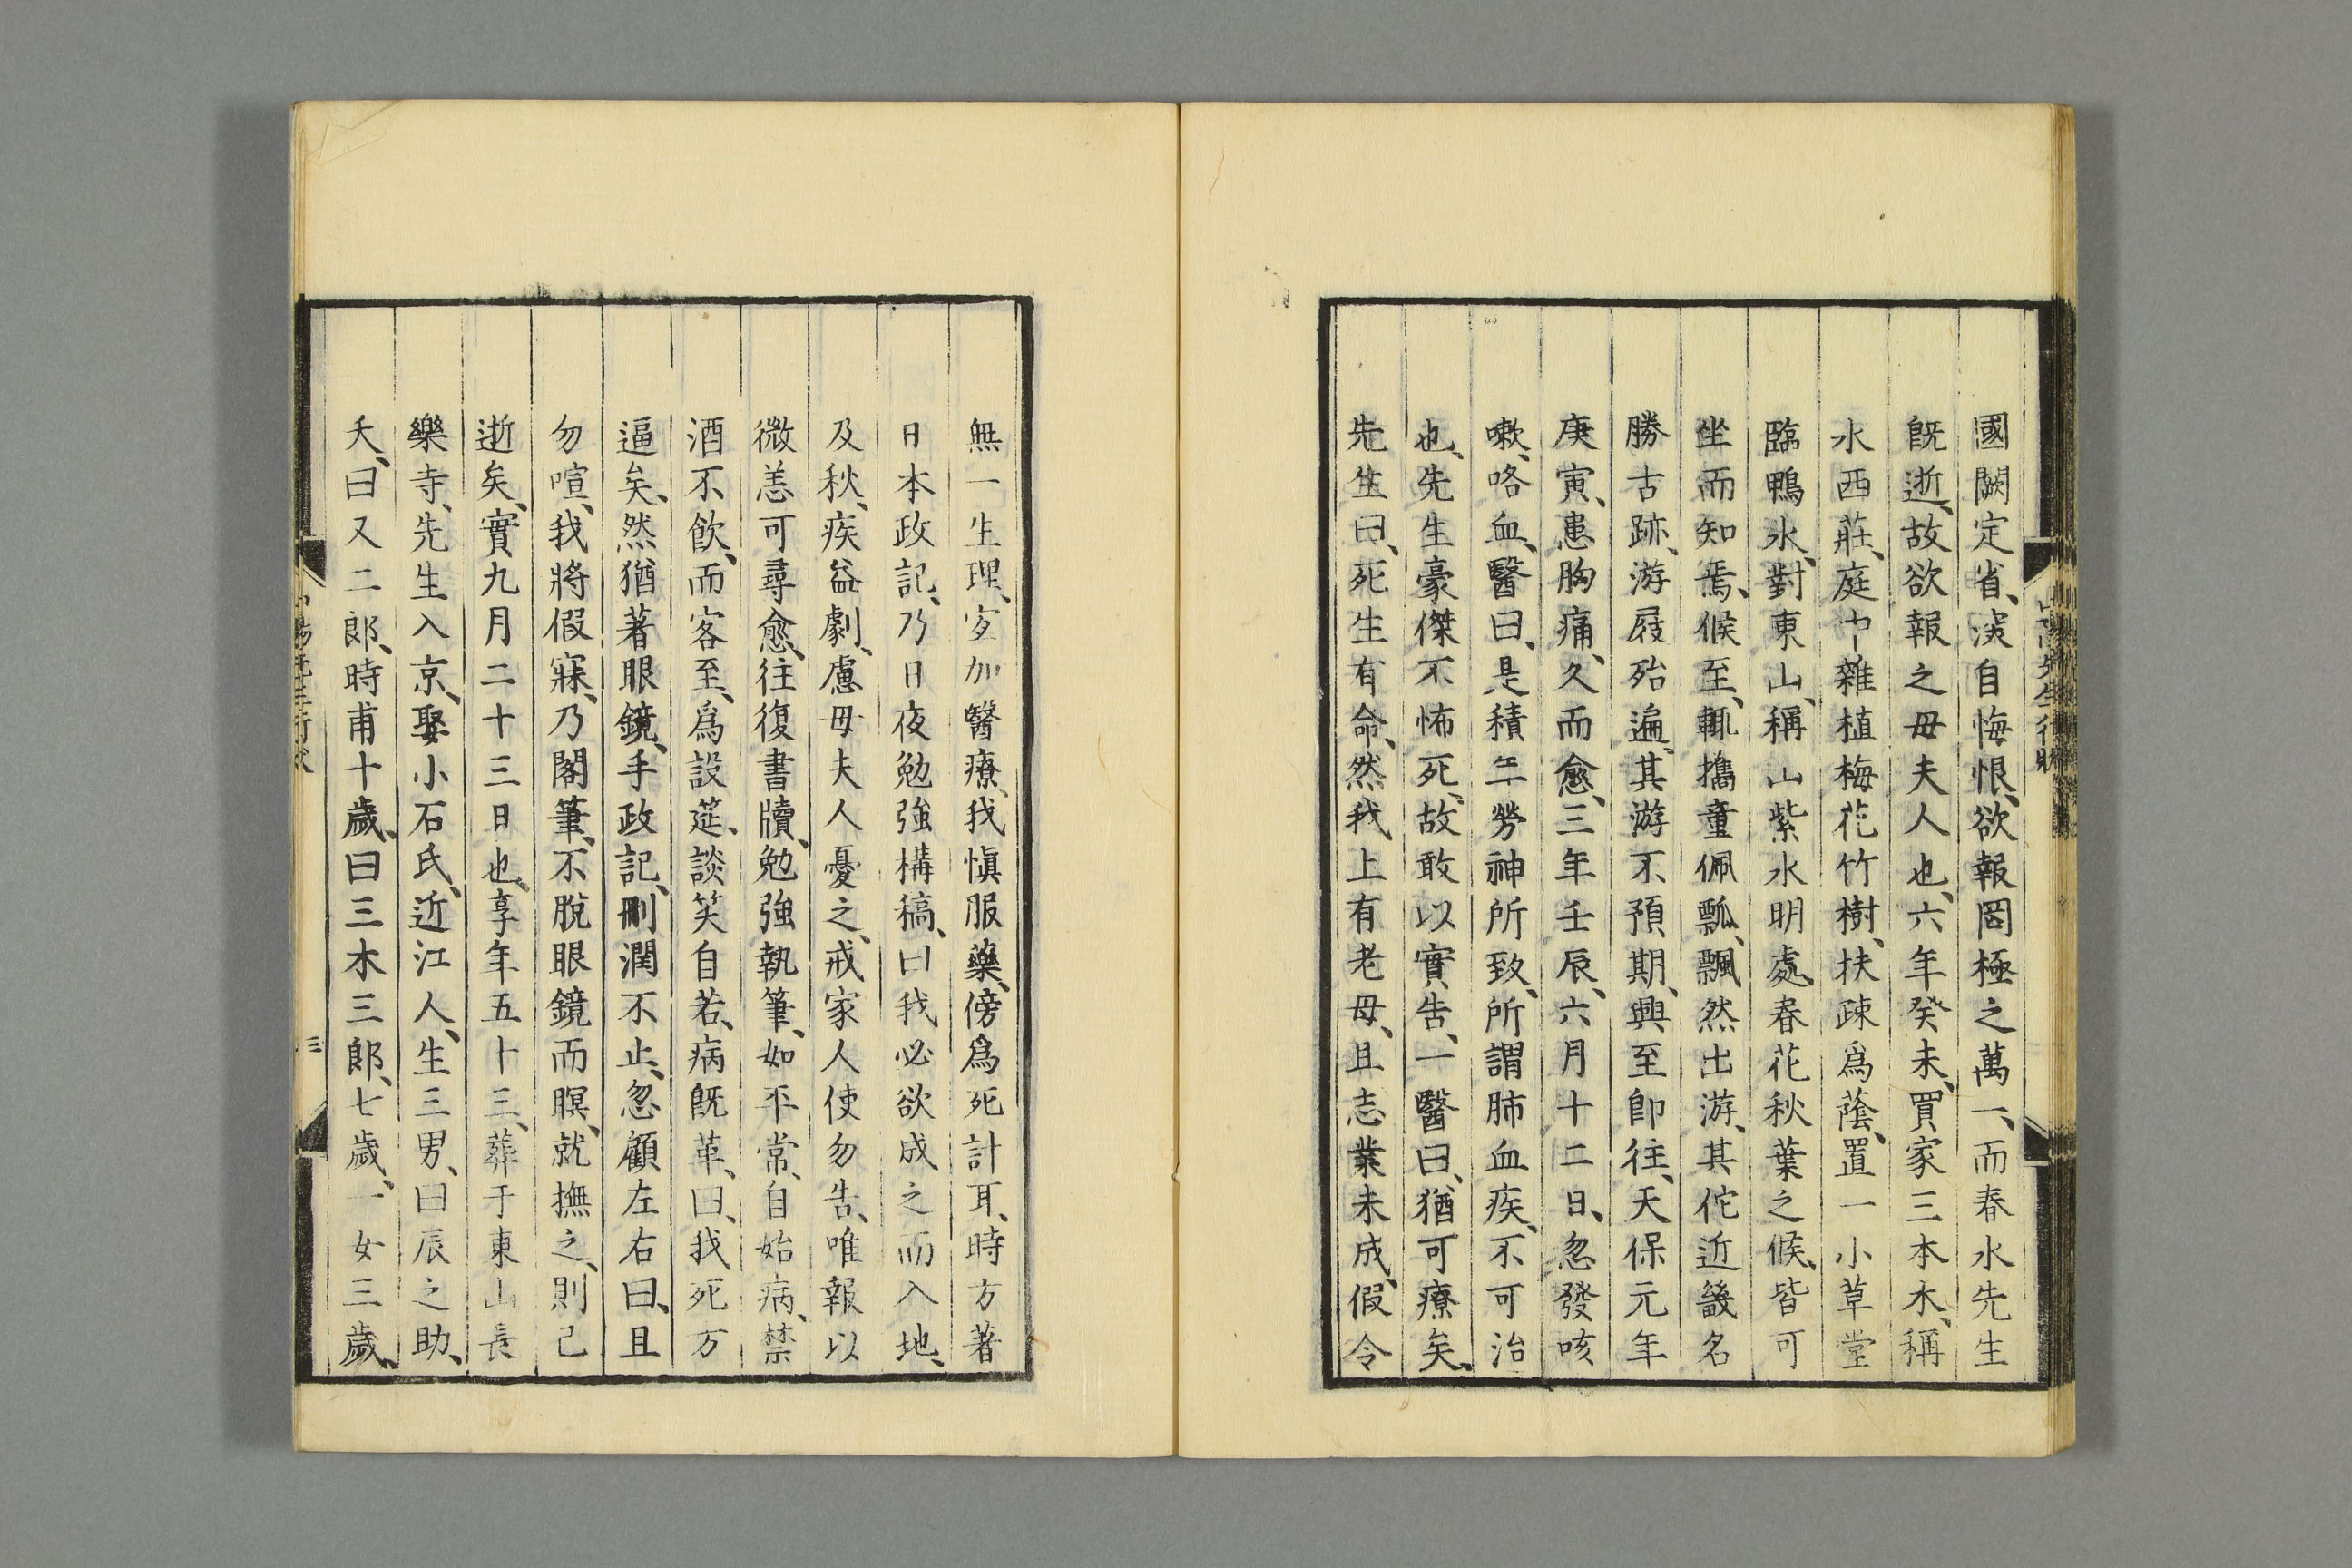 國闕定省、深自悔恨、欲報罔極之萬一、而春水先生
既逝、故欲報之母夫人也、六年癸未、買家三本木、稱
水西莊、庭中雜植梅花竹樹、扶疎爲蔭、置一小草堂
臨鴨水、對東山、稱山紫水明處、春花秋葉之候、皆可
坐而知焉、候至、輒攜童佩瓢、飄然出游、其佗近畿名
勝古跡、游屐殆遍、其游不預期、興至卽往、天保元年
庚寅、患胸痛、久而愈、三年壬辰、六月十二日、忽發咳
嗽、咯血、醫曰、是積年勞神所致、所謂肺血疾、不可治
也、先生豪傑不怖死、故敢以實告、一醫曰、猶可療矣、
先生曰、死生有命、然我上有老母、且志業未成、假令
無一生理、宜加醫療、我愼服藥、傍爲死計耳、時方著
日本政記、乃日夜勉強構稿、曰我必欲成之而入地、
及秋、疾益劇、慮母夫人憂之、戒家人使勿告、唯報以
微恙可尋愈、往復書牘、勉強執筆、如平常、自始病、禁
酒不飲、而客至、爲設筵、談笑自若、病既革、曰、我死方
逼矣、然猶著眼鏡、手政記、刪潤不止、忽顧左右曰、且
勿喧、我將假寐、乃閣筆、不脫眼鏡而瞑、就撫之、則已
逝矣、實九月二十三日也、享年五十三、葬于東山長
樂寺、先生入京、娶小石氏、近江人、生三男、曰辰之助、
夭、曰又二郞、時甫十歲、曰三木三郞、七歲、一女三歲、
三